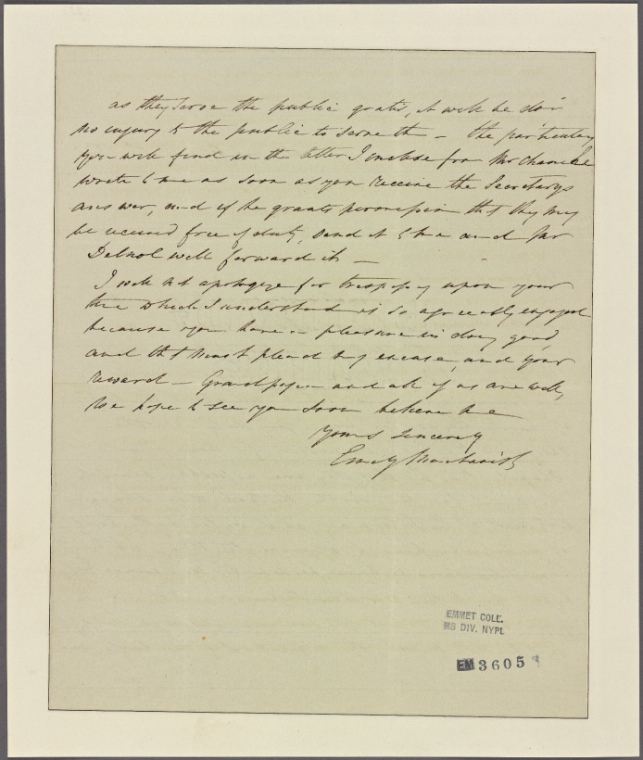 as they serve the public gratis, it will be doing
no injury to the public to serve them – the particulars
you will find in the letter I enclose from Mr
write to me as soon as you receive the Secretarys
answer, and if he grants permission that they may
be received free of duty, send it to me and Mr
will forward it –
I will not apologize for trespassing upon your
time which I understand is so agreeably enjoyed
because you have a pleasure in doing good,
and that must plead my excuse, and your
reward – Grandpapa and all of us are well,
We hope to see you soon believe me
Yours sincerely
Emily
EMMET COLL.
MS DIV. NYPL
EM 3605